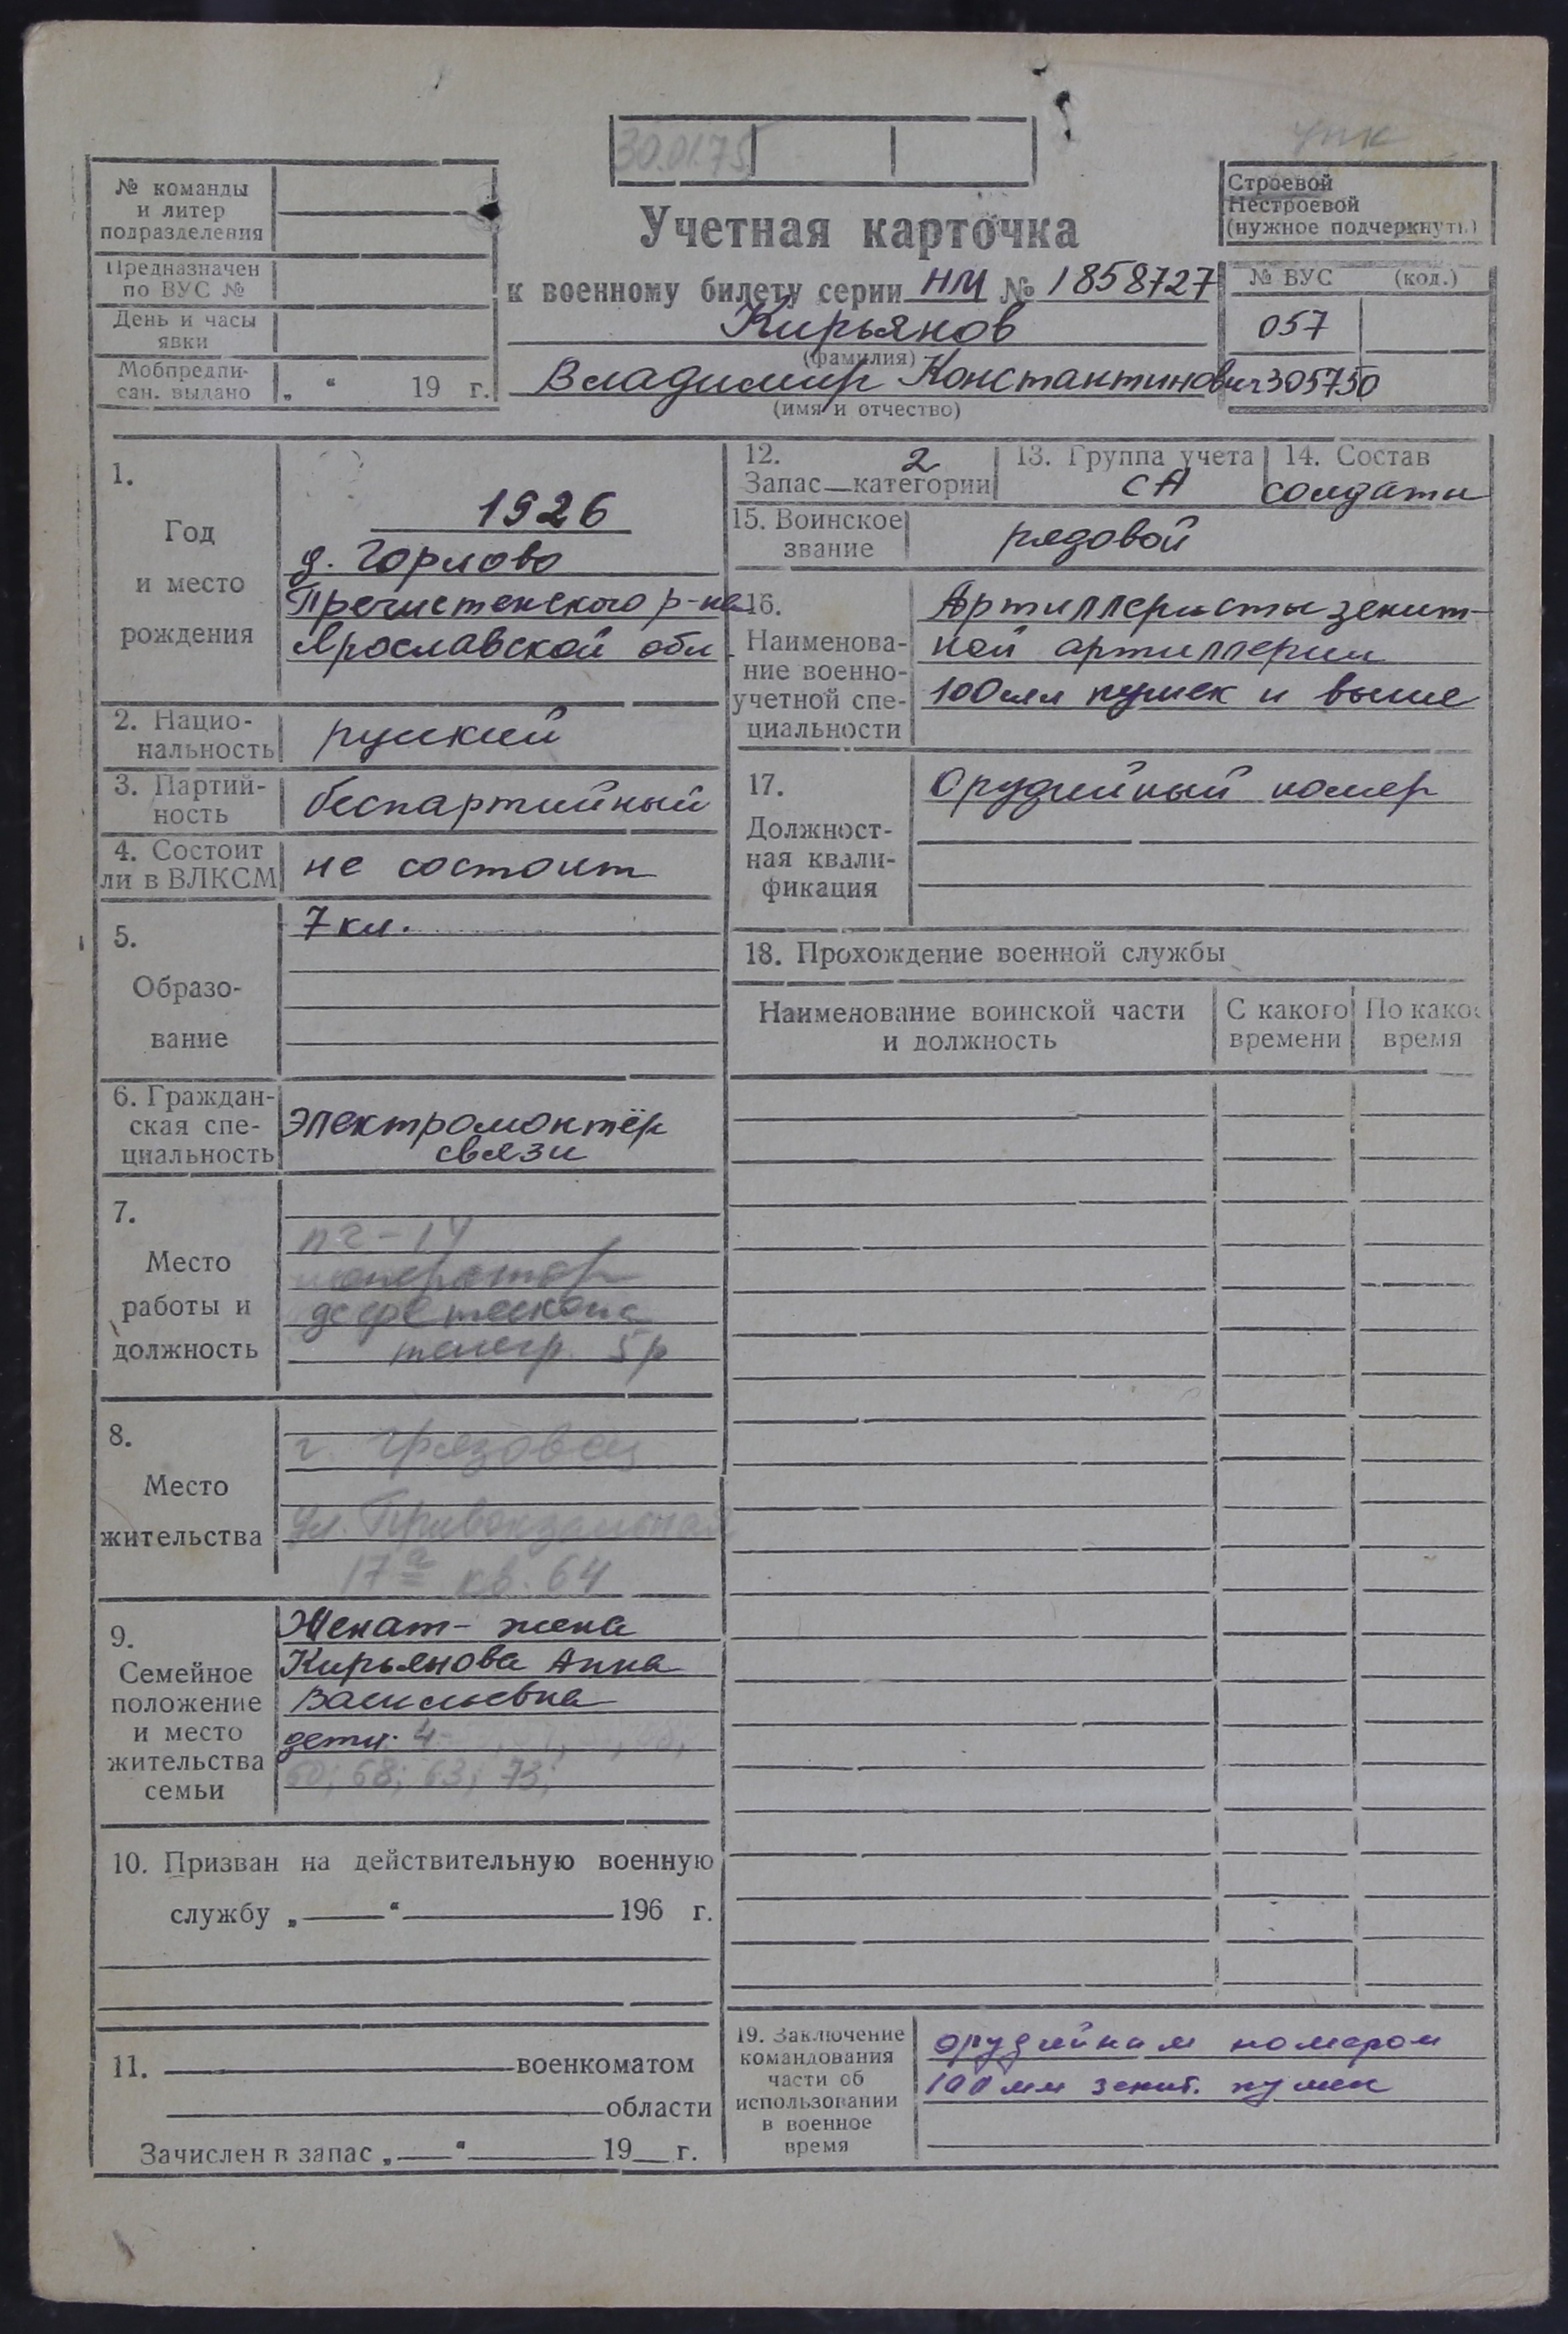 30.01.75
упк
№ команды
и литер
подразделения
Предназначен
по ВУС №
День и часы
явки
Мобпредпи-
сан. выдано „ “ 19 г.
Учетная карточка
к военному билету серии НМ № 1858727
Кирьянов
(фамилия)
Владимир Константинович
(имя и отчество)
Строевой
Нестроевой
(нужное подчеркнуть)
№ ВУС (код.)
057
305750
1.
Год
и место
рождения
1926
д. Горлово
Пречистенского р-на
Ярославской обл.
2. Нацио-
нальность
русский
3. Партий-
ность
беспартийный
4. Состоит
ли в ВЛКСМ
не состоит
5.
Образо-
вание
7 кл.
6. Граждан-
ская спе-
циальность
электромонтёр
связи
7.
Место
работы и
должность
телегр. 5р
8.
Место
жительства
г. Грязовец
ул. Привокзальная
17а кв. 64
9.
Семейное
положение
и место
жительства
семьи
Женат - жена
Кирьянова Анна
Васильевна
дети: 4-
60; 68; 63; 73;
10. Призван на действительную военную
службу „ “ 196 г.
11. военкоматом
области
Зачислен в запас „ “ 19 г.
12. 2
Запас—категории
13. Группа учета
СА
14. Состав
солдаты
15. Воинское
звание
рядовой
16.
Наименова-
ние военно-
учетной спе-
циальности
Артиллеристы зенит-
ной артиллерии
100мм пушек и выше
17.
Должност-
ная квали-
фикация
Орудийный номер
18. Прохождение военной службы
Наименование воинской части
и должность
С какого
времени
По како
время
19. Заключение
командования
части об
использовании
в военное
время
орудийным номером
100 мм зенит. пушек